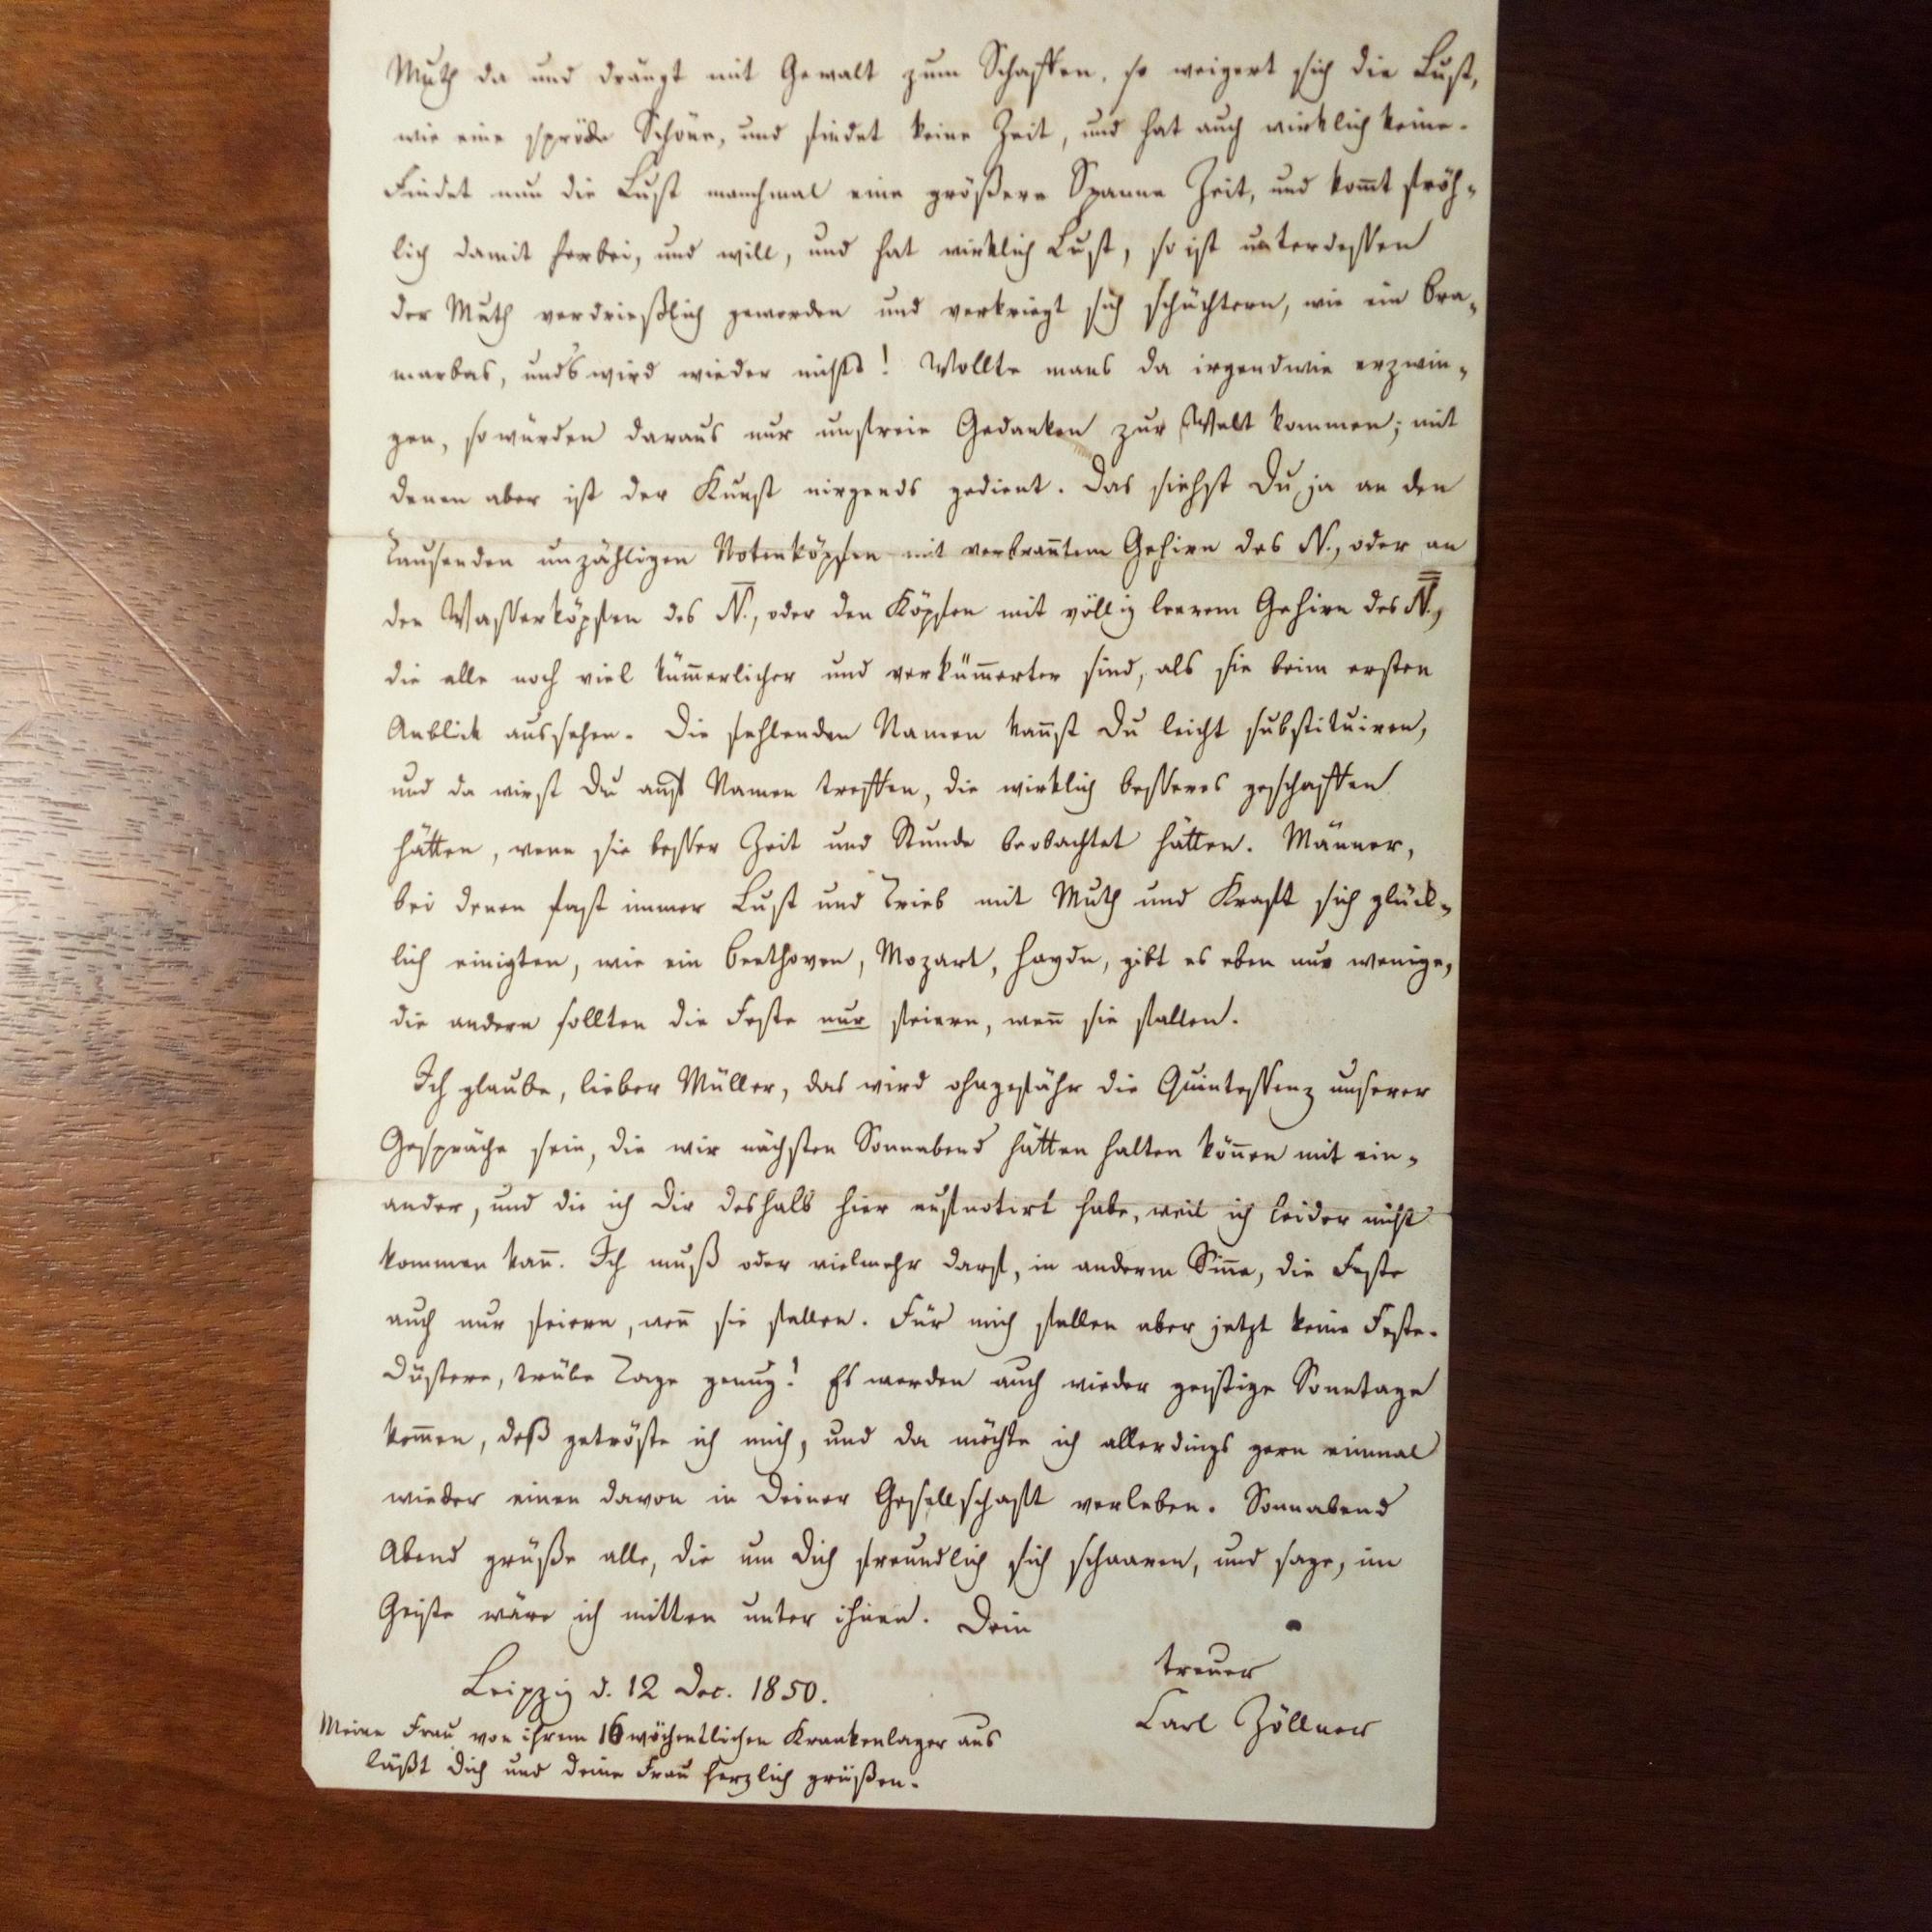 Muth da und drängt mit Gewalt zum Schaffen, so weigert sich die Lust,
wie eine spröde Schöne, und findet keine Zeit, und hat auch wirklich keine.
Findet nun die Lust manchmal eine größere Spanne Zeit, und kom̄t fröh-
lich damit herbei, und will, und hat wirklich Lust, so ist unterdessen
der Muth verdrießlich geworden und verkriegt sich schüchtern, wie ein Bra-
marbas, und's wird wieder nichts! Wollte mans da irgendwie erzwin-
gen, so würden daraus nur unfreie Gedanken zur Welt kommen; mit
denen aber ist der Kunst nirgends gedient. Das siehst Du ja an den
Tausenden unzähligen Notenköpfen mit verbran̄tem Gehirn des N., oder an
den Wasserköpfen des N̄., oder den Köpfen mit völlig leerem Gehirn des N̿.,
die alle noch viel küm̄erlicher und verküm̄erter sind, als sie beim ersten
Anblick aussehen. Die fehlenden Namen kan̄st Du leicht substituiren,
und da wirst Du auf Namen treffen, die wirklich besseres geschaffen
hätten, wenn sie besser Zeit und Stunde beobachtet hätten. Männer,
bei denen fast immer Lust und Trieb mit Muth und Kraft sich glück-
lich einigten, wie ein Beethoven, Mozart, Haydn, gibt es eben nur wenige,
die andern sollten die Feste nur feiern, wen̄ sie fallen.
Ich glaube, lieber Müller, das wird ohngefähr die Quintessenz unserer
Gespräche sein, die wir nächsten Sonnabend hätten halten kön̄en mit ein-
ander, und die ich Dir deshalb hier aufnotirt habe, weil ich leider nicht
kommen kan̄. Ich muß oder vielmehr darf, in anderm Sin̄e, die Feste
auch nur feiern, wen̄ sie fallen. Für mich fallen aber jetzt keine Feste.
Düstere, trübe Tage genug! Es werden auch wieder geistige Sonntage
kom̄en, deß getröste ich mich, und da möchte ich allerdings gern einmal
wieder einen davon in Deiner Gesellschaft verleben. Sonnabend
Abend grüße alle, die um Dich freundlich sich schaaren, und sage, im
Geiste wäre ich mitten unter ihnen. Dein
treuer
Carl Zöllner
Leipzig d. 12 Dec. 1850.
Meine Frau von ihrem 16 wöchentlichen Krankenlager aus
läßt Dich und Deine Frau herzlich grüßen.